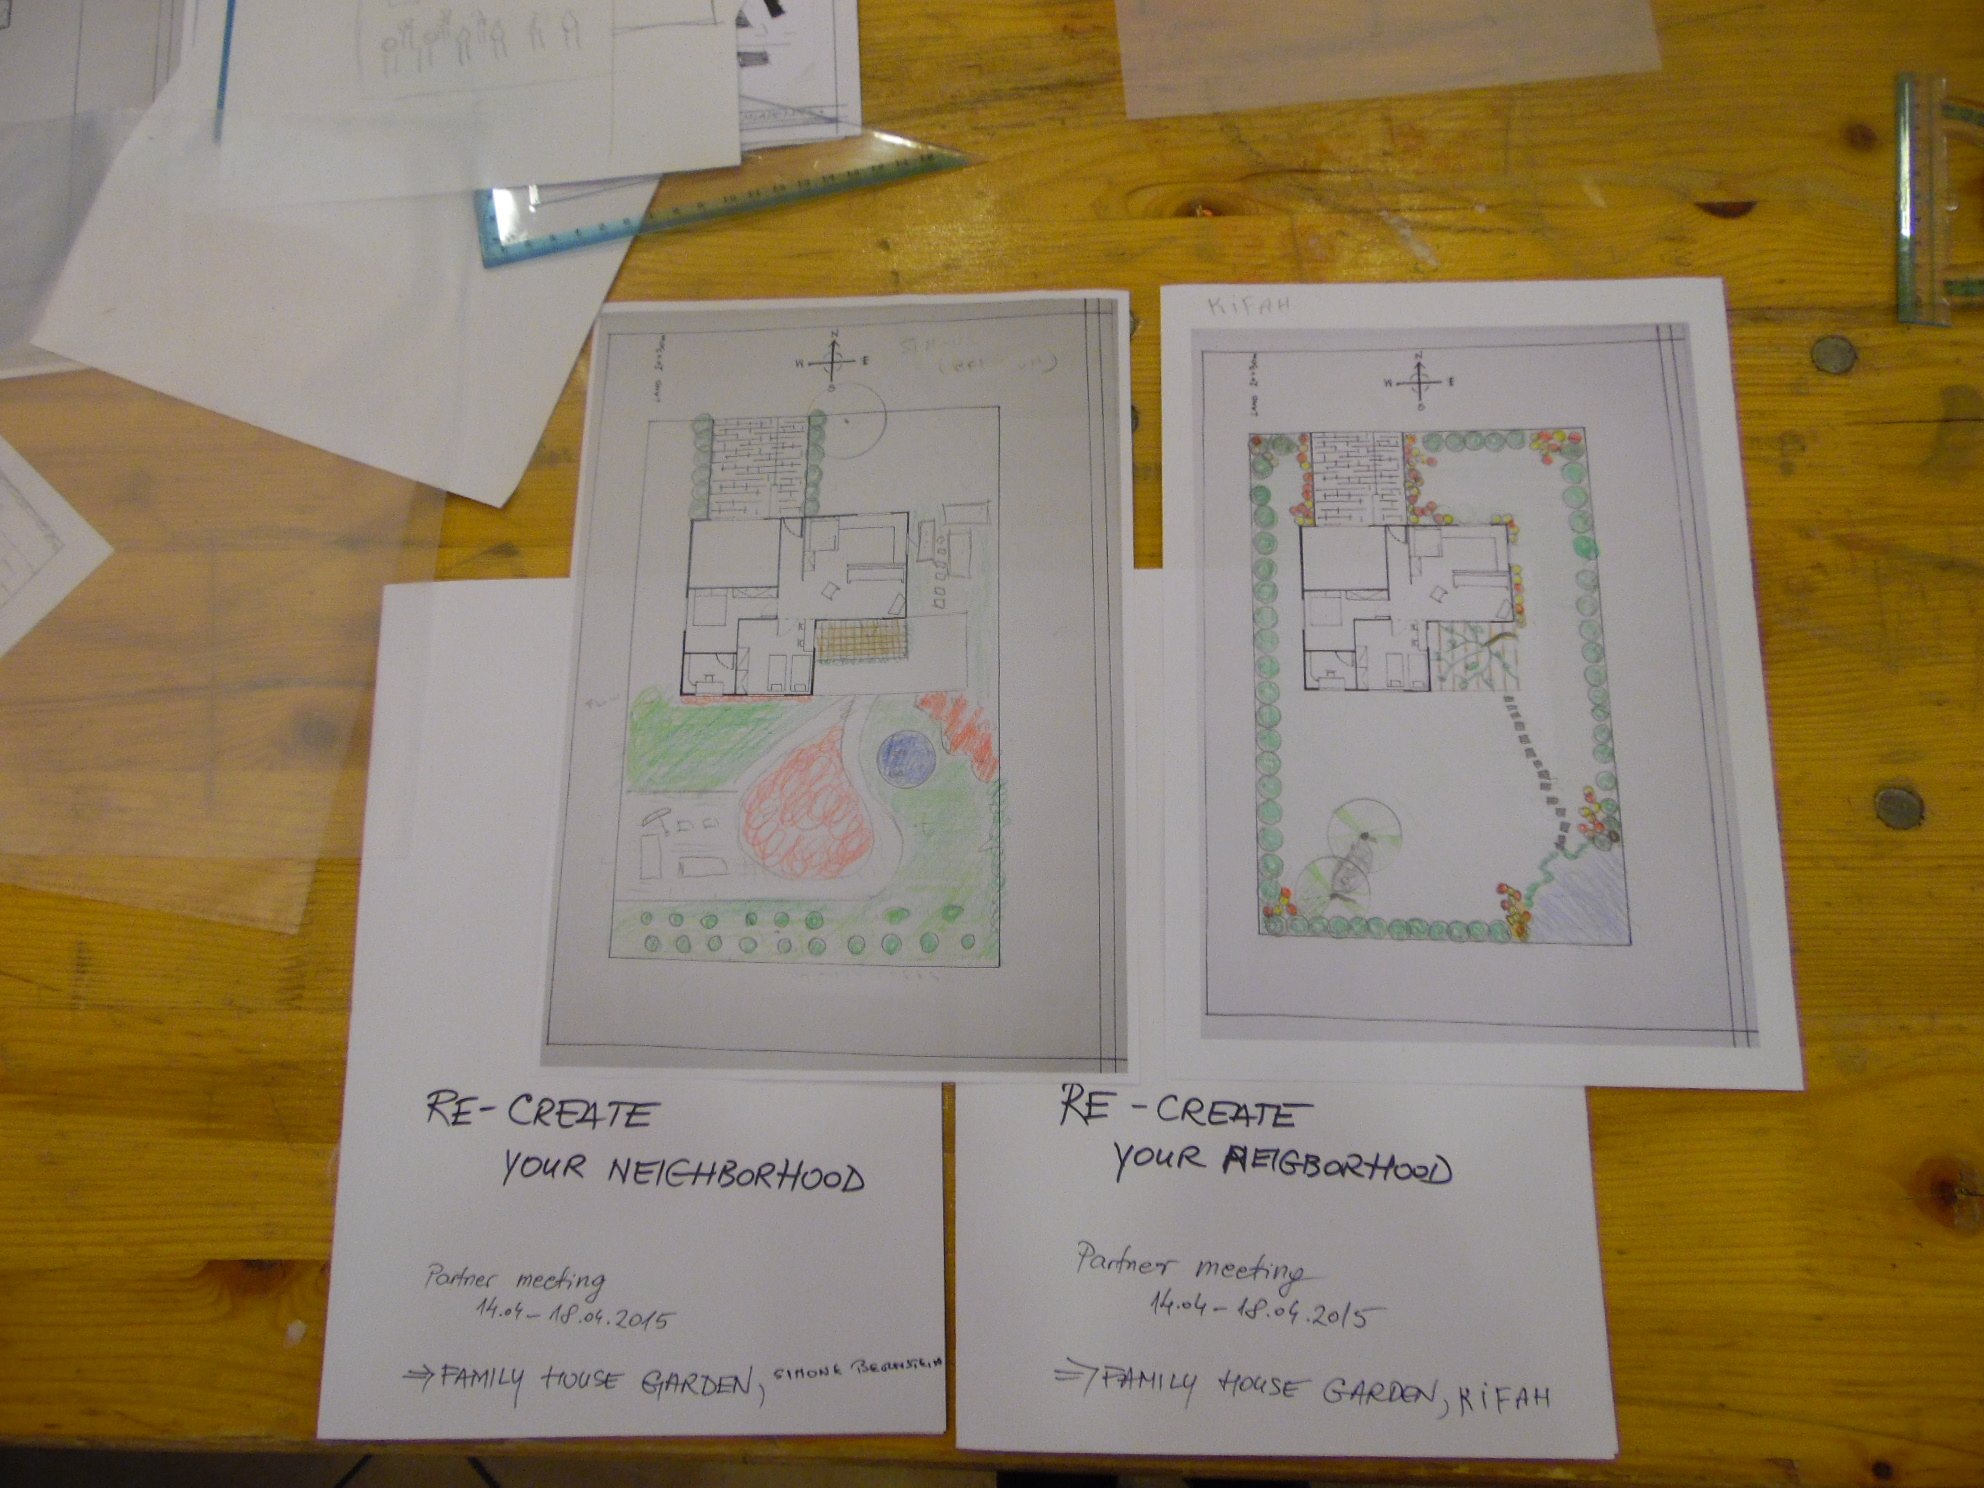 KiFAH
LAND 20×30m
N
W E
S
LAND 20×30m
N
W E
S
RE-CREATE
YOUR NEIGHBORHOOD
Partner meeting
14.04-18.04.2015
⇒ FAMILY HOUSE GARDEN, SIMONE BERNSTEIN
RE-CREATE
YOUR NEIGBORHOOD
Partner meeting
14.04-18.04.2015
⇒ FAMILY HOUSE GARDEN, KiFAH